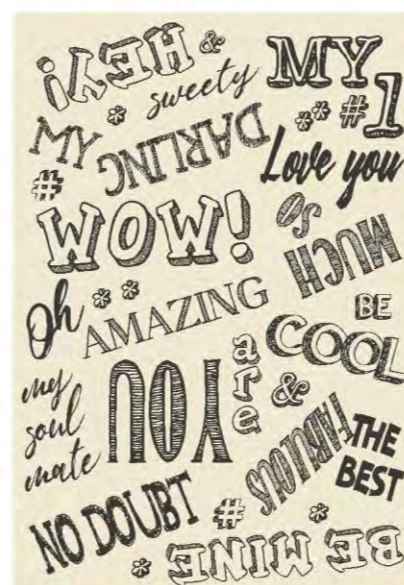 HEY! &
sweety
MY
#1
MY
DARLING
#
Love you
WOW!
SO
MUCH
Oh
AMAZING
BE
COOL
YOU
are
my
soul
mate
&
FABULOUS
THE
BEST
NO DOUBT
#
BE MINE